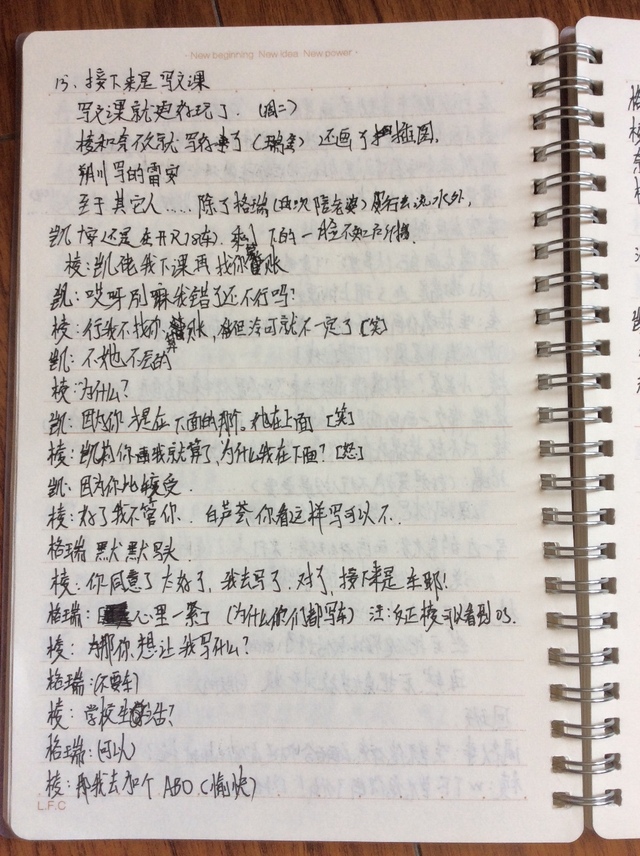 - New beginning New idea New power -
13、接下来是写文课
写文课就更好玩了.（周二）
棱和 就写好了（瑞金）还画了插图.
朔川写的雷安
至于其它人……除了格瑞（ 次陪老婆） 去 水外,
凯 还是在开R18车). 剩下的一脸不知所措.
棱:凯佬我下课再找你算账
凯:哎呀别嘛我错了还不行吗!
棱:行我不找你算账,但 可就不一定了[笑]
凯:不她也不会的
棱:为什么?
凯:因为你是在下面的那个。她在上面 [笑]
棱:凯莉你画我就算了,为什么我在下面?[怒]
凯:因为你比较受.
棱:好了我不管你. 白芦荟你看这样写可以不.
格瑞默默点头.
棱:你同意了太好了, 我去写了. 对了,接下来是车耶!
格瑞: 心里一紧了(为什么你们都写车) 注:反正棱可以看到OS.
棱: 那你想让我写什么?
格瑞:(不要车)
棱:学校生活?
格瑞:(可以)
棱:那我去加个ABO(愉快)
L.F.C